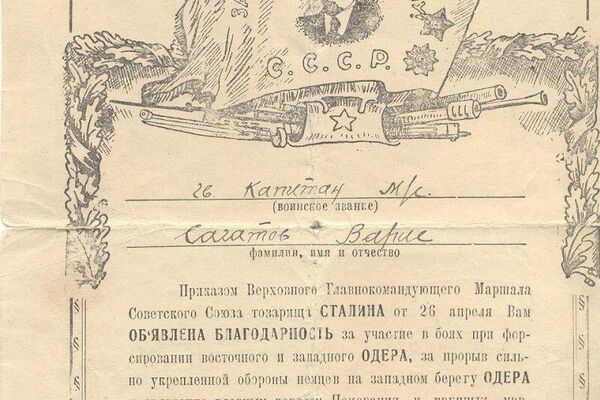 ЗА
С.С.С.Р.
гв. Капитан м/с.
(воинское званье)
Сагатов Варис
фамилия, имя и отчество
Приказом Верховного Главнокомандующего Маршала
Советского Союза товарища СТАЛИНА от 26 апреля Вам
ОБ'ЯВЛЕНА БЛАГОДАРНОСТЬ за участие в боях при фор-
сировании восточного и западного ОДЕРА, за прорыв силь-
но укрепленной обороны немцев на западном берегу ОДЕРА